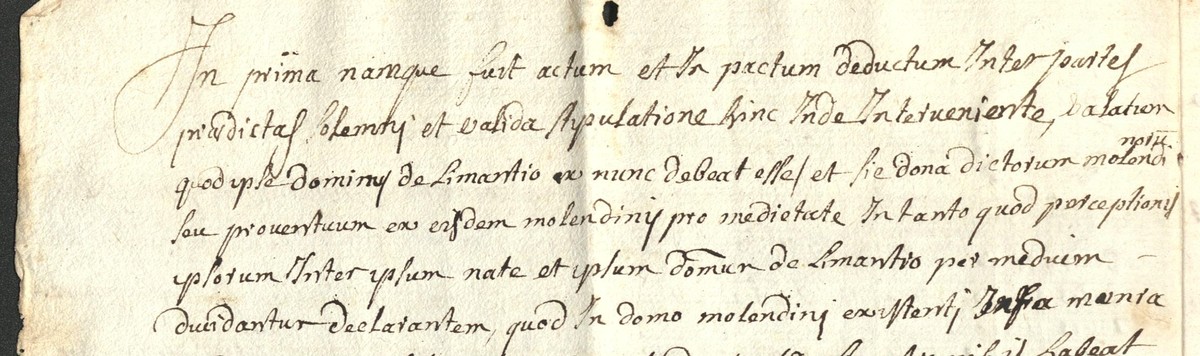 In prima namque fuit actum et In pactum deductum Inter partes
prædictas solemnj et valida stipulatione hinc Inde Interveniente, valatum
quod ipse dominus de Limantio ex nunc debeat esse, et sie dona dictorum molendi
norū
seu proventuum ex eisdem molendinij pro medietate In tanto quod perceptionis
ipsorum Inter ipsum nate et ipsum domum de Limantio per medium
dividantur declarantem, quod In domo molendinj existentj Infra menia
habeat